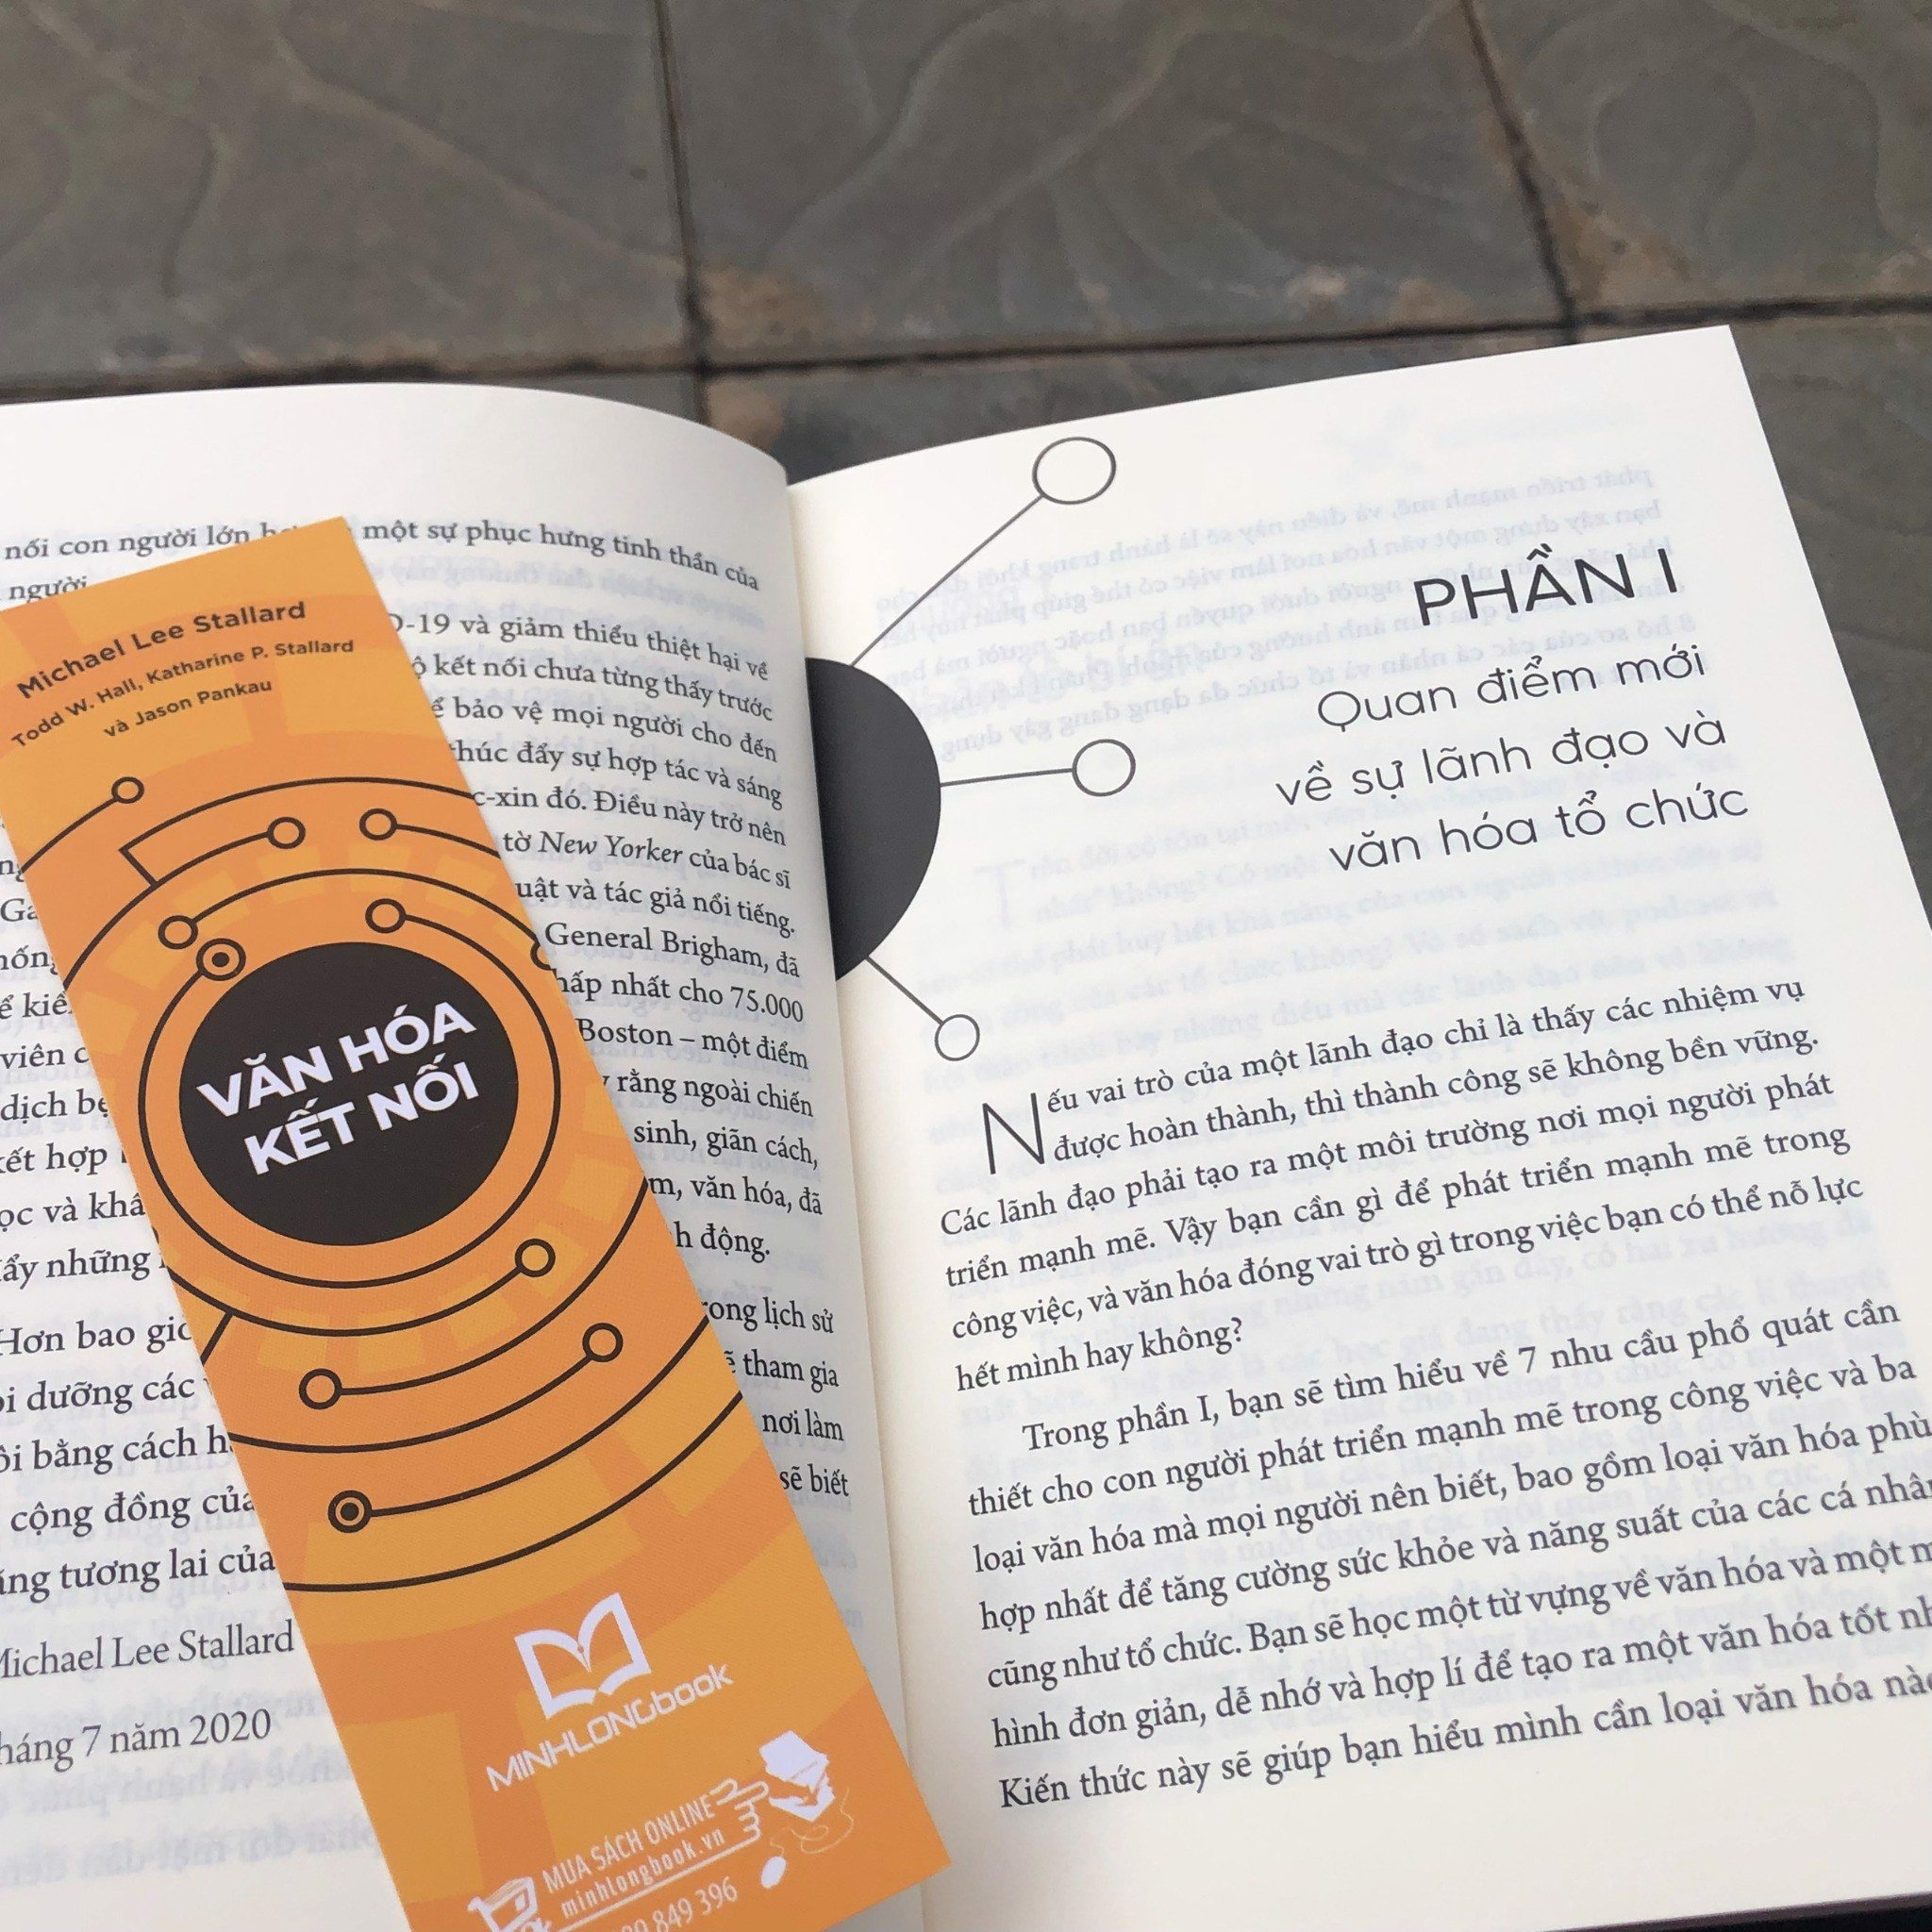 nối con người lớn
một sự phục hưng tinh thần của
người
-19 và giảm thiểu thiệt hại về
kết nối chưa từng thấy trước
bảo vệ mọi người cho đến
thúc đẩy sự hợp tác và sáng
c-xin đó. Điều này trở nên
tờ New Yorker của bác sĩ
và tác giả nổi tiếng.
General Brigham, đã
nhất cho 75.000
Boston – một điểm
rằng ngoài chiến
sinh, giãn cách,
văn hóa, đã
động.
lịch sử
tham gia
nơi làm
sẽ biết
viên
dịch
kết hợp
và
những
Hơn bao
dưỡng các
bằng cách
cộng đồng của
tương lai của
Michael Lee Stallard
tháng 7 năm 2020
Michael Lee Stallard
Todd W. Hall, Katharine P. Stallard
và Jason Pankau
VĂN HÓA
KẾT NỐI
MINHLONGbook
MUA SÁCH ONLINE
minhlongbook.vn
849 396
PHẦN I
Quan điểm mới
về sự lãnh đạo và
văn hóa tổ chức
Nếu vai trò của một lãnh đạo chỉ là thấy các nhiệm vụ
được hoàn thành, thì thành công sẽ không bền vững.
Các lãnh đạo phải tạo ra một môi trường nơi mọi người phát
triển mạnh mẽ. Vậy bạn cần gì để phát triển mạnh mẽ trong
công việc, và văn hóa đóng vai trò gì trong việc bạn có thể nỗ lực
hết mình hay không?
Trong phần I, bạn sẽ tìm hiểu về 7 nhu cầu phổ quát cần
thiết cho con người phát triển mạnh mẽ trong công việc và ba
loại văn hóa mà mọi người nên biết, bao gồm loại văn hóa phù
hợp nhất để tăng cường sức khỏe và năng suất của các cá nhân
cũng như tổ chức. Bạn sẽ học một từ vựng về văn hóa và một
hình đơn giản, dễ nhớ và hợp lí để tạo ra một văn hóa tốt
Kiến thức này sẽ giúp bạn hiểu mình cần loại văn hóa